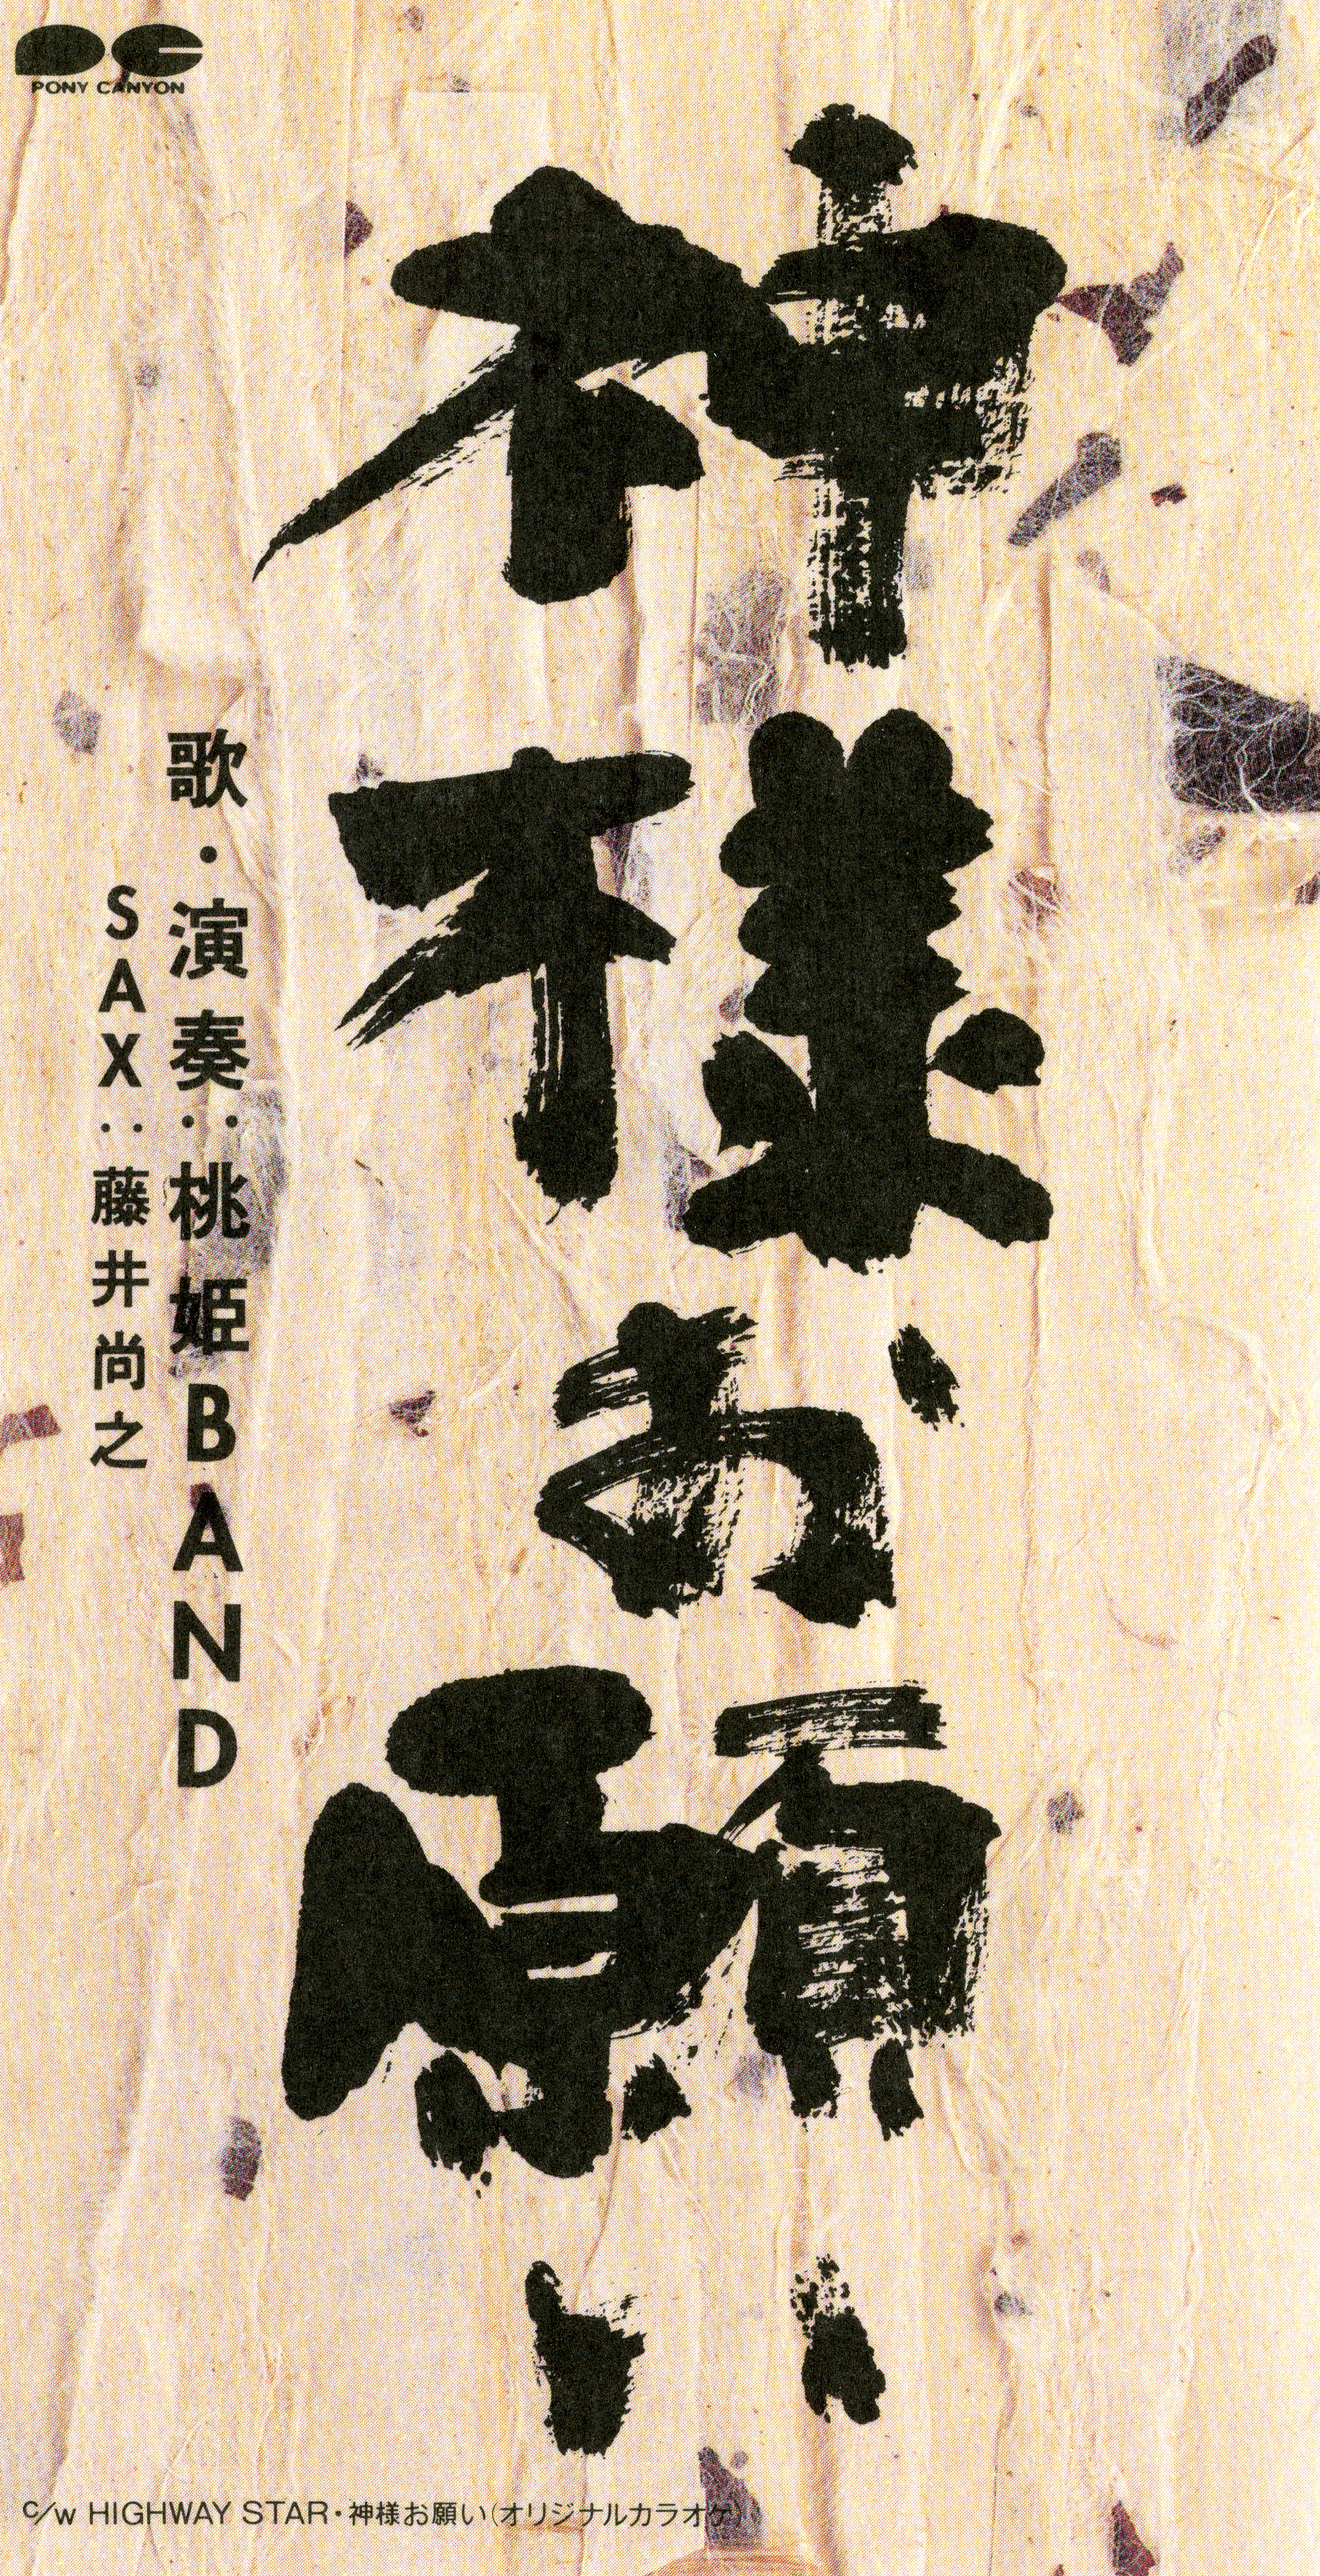 PONY CANYON
神様お願い
歌・演奏:桃姫BAND
SAX:藤井尚之
c/w HIGHWAY STAR・神様お願い(オリジナルカラオケ)